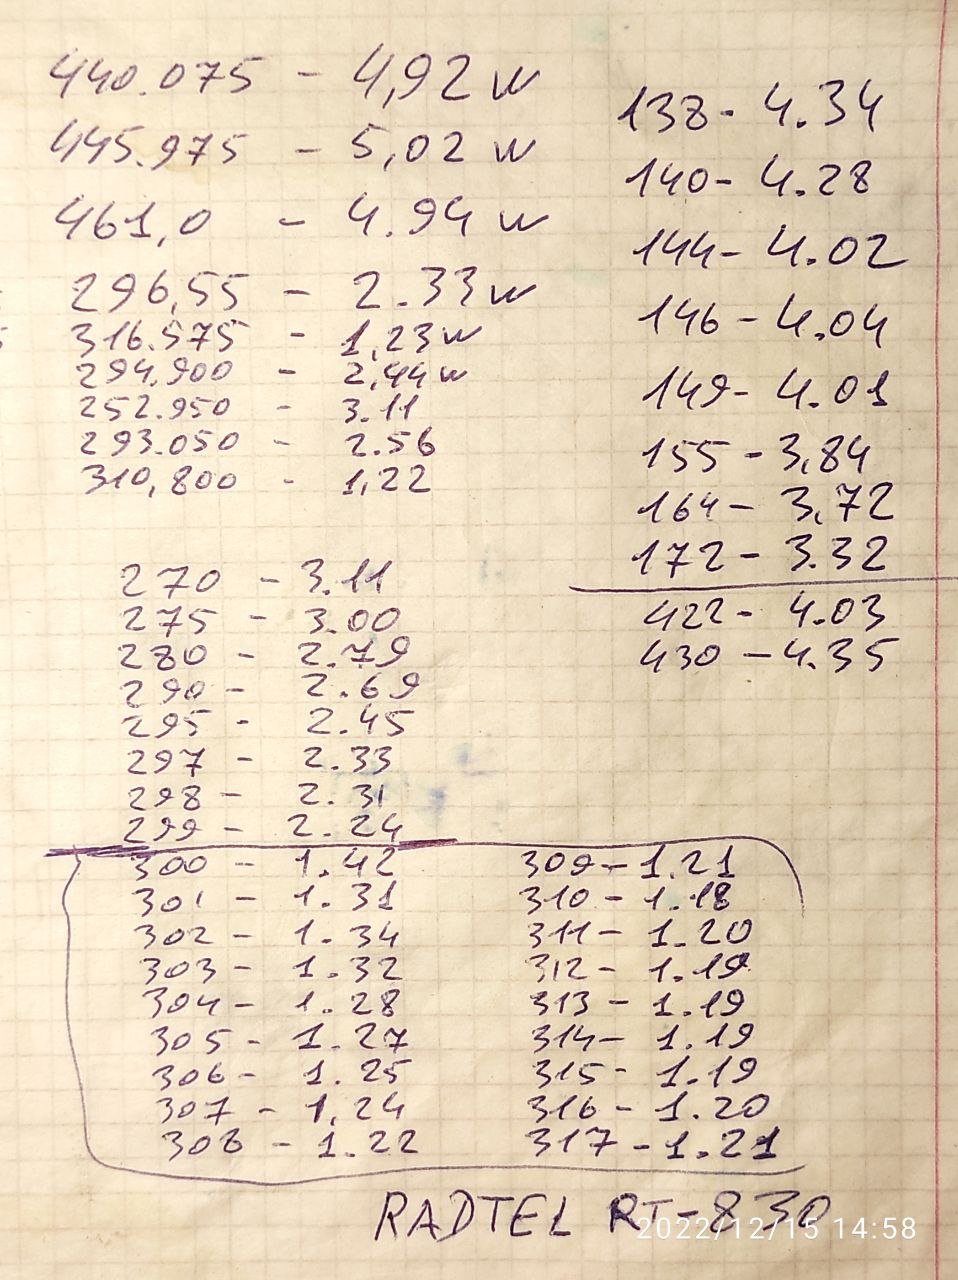 440.075 - 4,92 w
445.975 - 5,02 w
461,0 - 4.94 w
296,55 - 2.33 w
316.575 - 1,23 w
294.900 - 2,44 w
252.950 - 3.11
293.050 - 2.56
310,800 - 1,22
270 - 3.11
275 - 3.00
280 - 2.79
290 - 2.69
295 - 2.45
297 - 2.33
298 - 2.31
299 - 2.24
138 - 4.34
140 - 4.28
144 - 4.02
146 - 4.04
149 - 4.01
155 - 3,84
164 - 3,72
172 - 3.32
422 - 4.03
430 - 4.35
300 - 1.42
301 - 1.31
302 - 1.34
303 - 1.32
304 - 1.28
305 - 1.27
306 - 1.25
307 - 1,24
308 - 1.22
309 - 1.21
310 - 1.18
311 - 1.20
312 - 1.19
313 - 1.19
314 - 1.19
315 - 1.19
316 - 1.20
317 - 1.21
RADTEL RT-830
2022/12/15 14:58